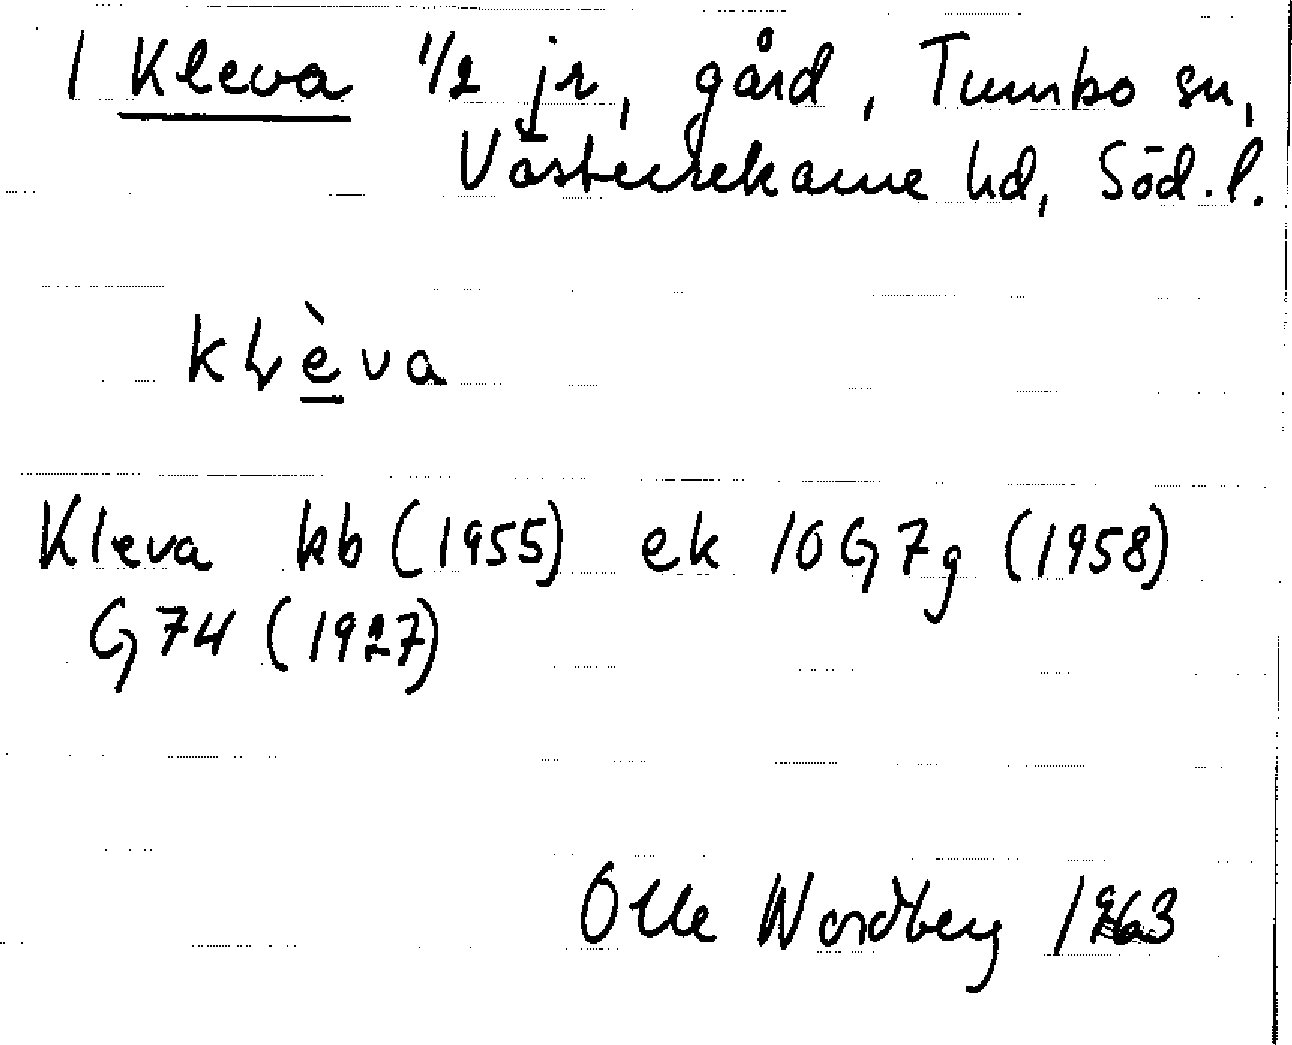 1 Kleva 1/2 jr, gård, Tumbo sn,
Västerrekarne hd, Söd.l.
klèva
Kleva kb (1955) ek 10G7g (1958)
G74 (1927)
Olle Nordberg 1963